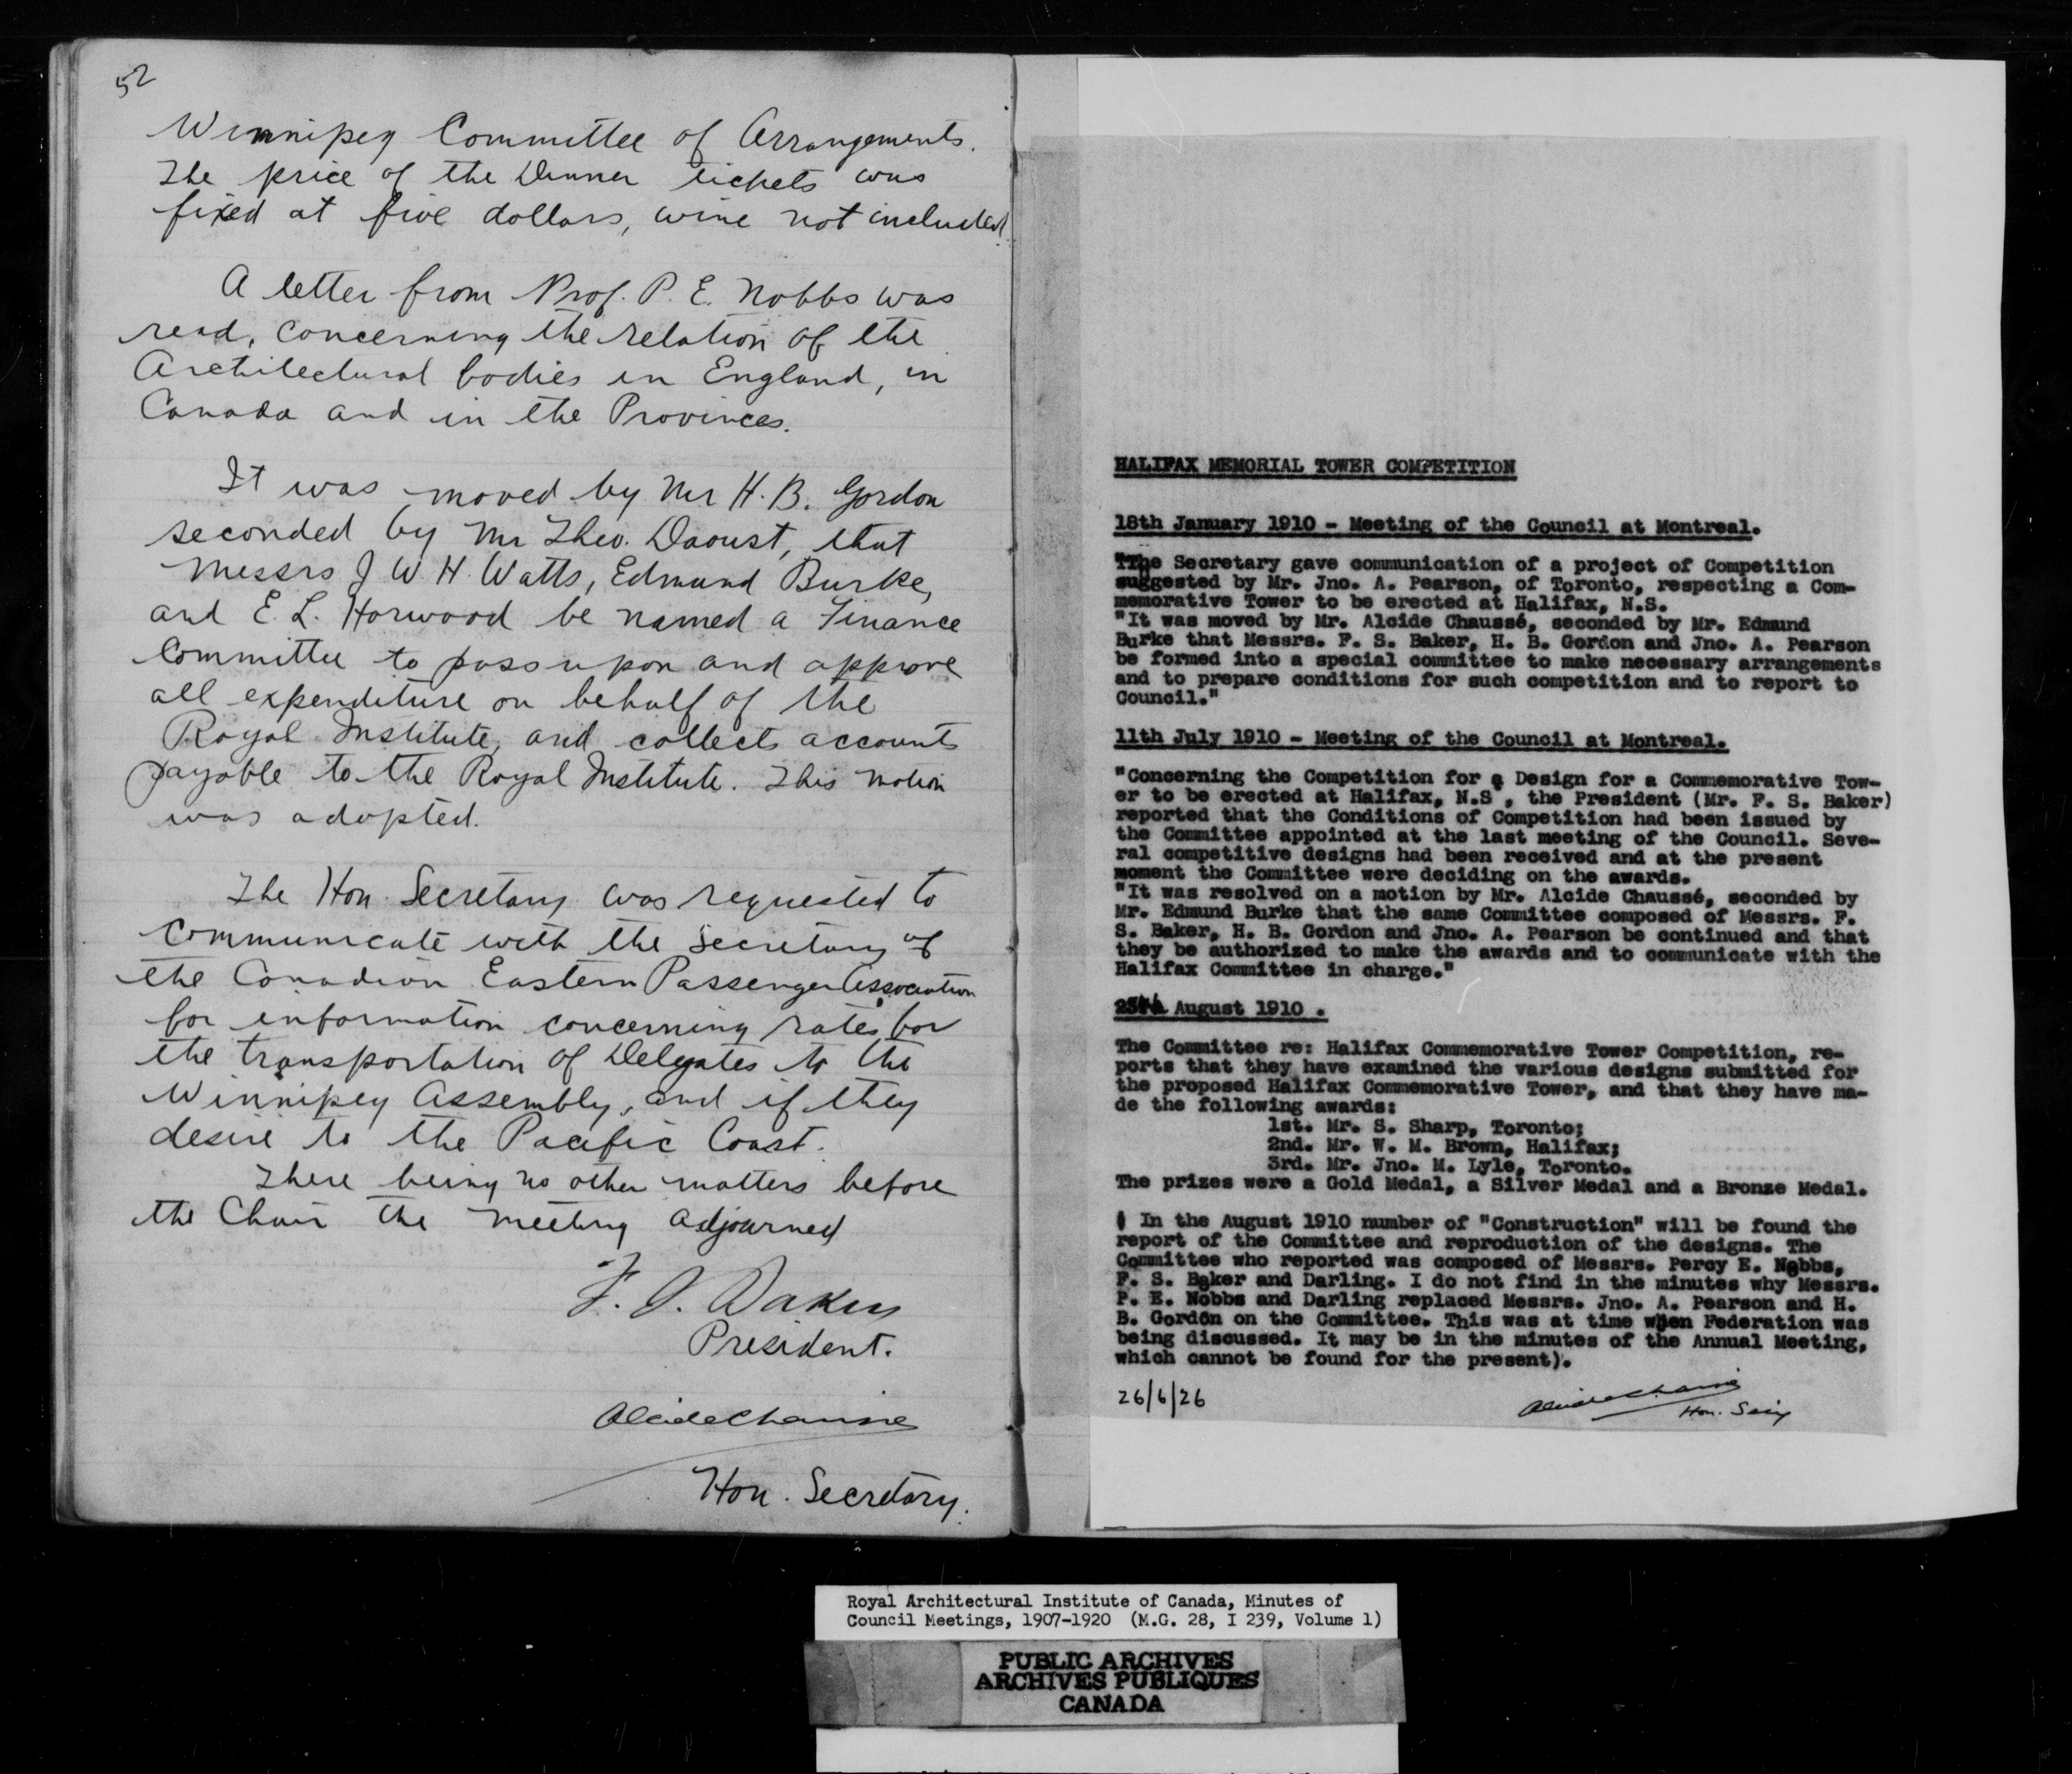 52
Winnipeg Committee of Arrangements.
The price of the Dinner tickets was
fixed at five dollars, wine not included.
A letter from Prof. P. E. Nobbs was
read, concerning the relation of the
Architectural bodies in England, in
Canada and in the Provinces.
It was moved by Mr H. B. Gordon
seconded by Mr Theo. Daoust, that
Messrs J. W. H. Watts, Edmund Burke,
and E. L. Horwood be named a Finance
Committee to pass upon and approve
all expenditure on behalf of the
Royal Institute, and collects accounts
payable to the Royal Institute. This motion
was adopted.
The Hon. Secretary was requested to
communicate with the Secretary of
the Canadian Eastern Passenger Association
for information concerning rates for
the transportation of Delegates to the
Winnipeg Assembly, and if they
desire to the Pacific Coast.
There being no other matters before
the Chair the meeting adjourned
F. S. Baker
President.
Alcide Chaussé
Hon. Secretary.
HALIFAX MEMORIAL TOWER COMPETITION
18th January 1910 - Meeting of the Council at Montreal.
"The Secretary gave communication of a project of Competition
suggested by Mr. Jno. A. Pearson, of Toronto, respecting a Com-
memorative Tower to be erected at Halifax, N.S.
"It was moved by Mr. Alcide Chaussé, seconded by Mr. Edmund
Burke that Messrs. F. S. Baker, H. B. Gordon and Jno. A. Pearson
be formed into a special committee to make necessary arrangements
and to prepare conditions for such competition and to report to
Council."
11th July 1910 - Meeting of the Council at Montreal.
"Concerning the Competition for a Design for a Commemorative Tow-
er to be erected at Halifax, N.S , the President (Mr. F. S. Baker)
reported that the Conditions of Competition had been issued by
the Committee appointed at the last meeting of the Council. Seve-
ral competitive designs had been received and at the present
moment the Committee were deciding on the awards.
"It was resolved on a motion by Mr. Alcide Chaussé, seconded by
Mr. Edmund Burke that the same Committee composed of Messrs. F.
S. Baker, H. B. Gordon and Jno. A. Pearson be continued and that
they be authorized to make the awards and to communicate with the
Halifax Committee in charge."
August 1910 .
The Committee re: Halifax Commemorative Tower Competition, re-
ports that they have examined the various designs submitted for
the proposed Halifax Commemorative Tower, and that they have ma-
de the following awards:
1st. Mr. S. Sharp, Toronto;
2nd. Mr. W. M. Brown, Halifax;
3rd. Mr. Jno. M. Lyle, Toronto.
The prizes were a Gold Medal, a Silver Medal and a Bronze Medal.
( In the August 1910 number of "Construction" will be found the
report of the Committee and reproduction of the designs. The
Committee who reported was composed of Messrs. Percy E. Nobbs,
F. S. Baker and Darling. I do not find in the minutes why Messrs.
P. E. Nobbs and Darling replaced Messrs. Jno. A. Pearson and H.
B. Gordon on the Committee. This was at time when Federation was
being discussed. It may be in the minutes of the Annual Meeting,
which cannot be found for the present).
26/6/26
Alcide Chaussé
Hon. Secy
Royal Architectural Institute of Canada, Minutes of
Council Meetings, 1907-1920 (M.G. 28, I 239, Volume 1)
PUBLIC ARCHIVES
ARCHIVES PUBLIQUES
CANADA